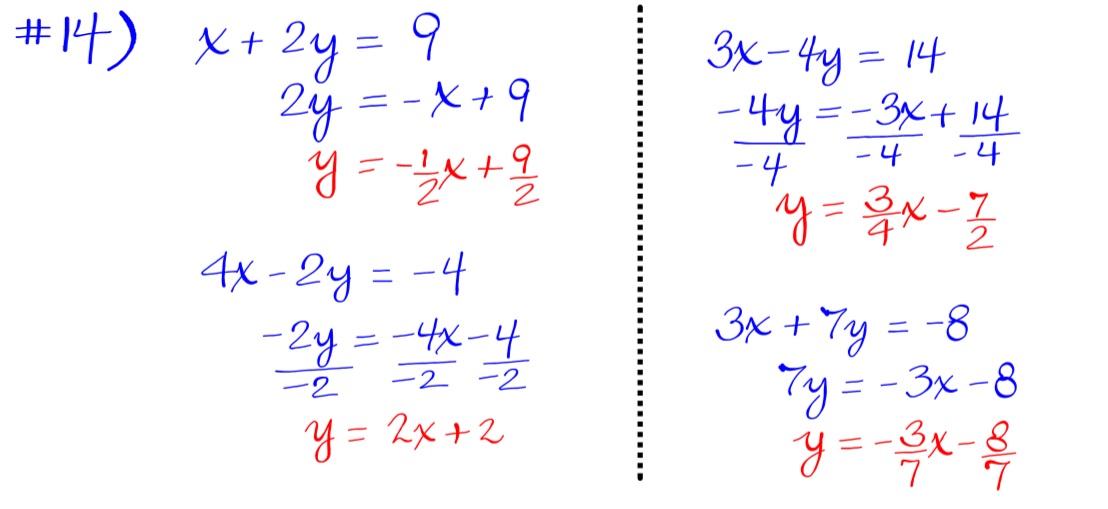 #14) x + 2y = 9
2y = -x + 9
y = -1/2x + 9/2
4x - 2y = -4
-2y/-2 = -4x/-2 - 4/-2
y = 2x + 2
3x - 4y = 14
-4y/-4 = -3x/-4 + 14/-4
y = 3/4x - 7/2
3x + 7y = -8
7y = -3x - 8
y = -3/7x - 8/7